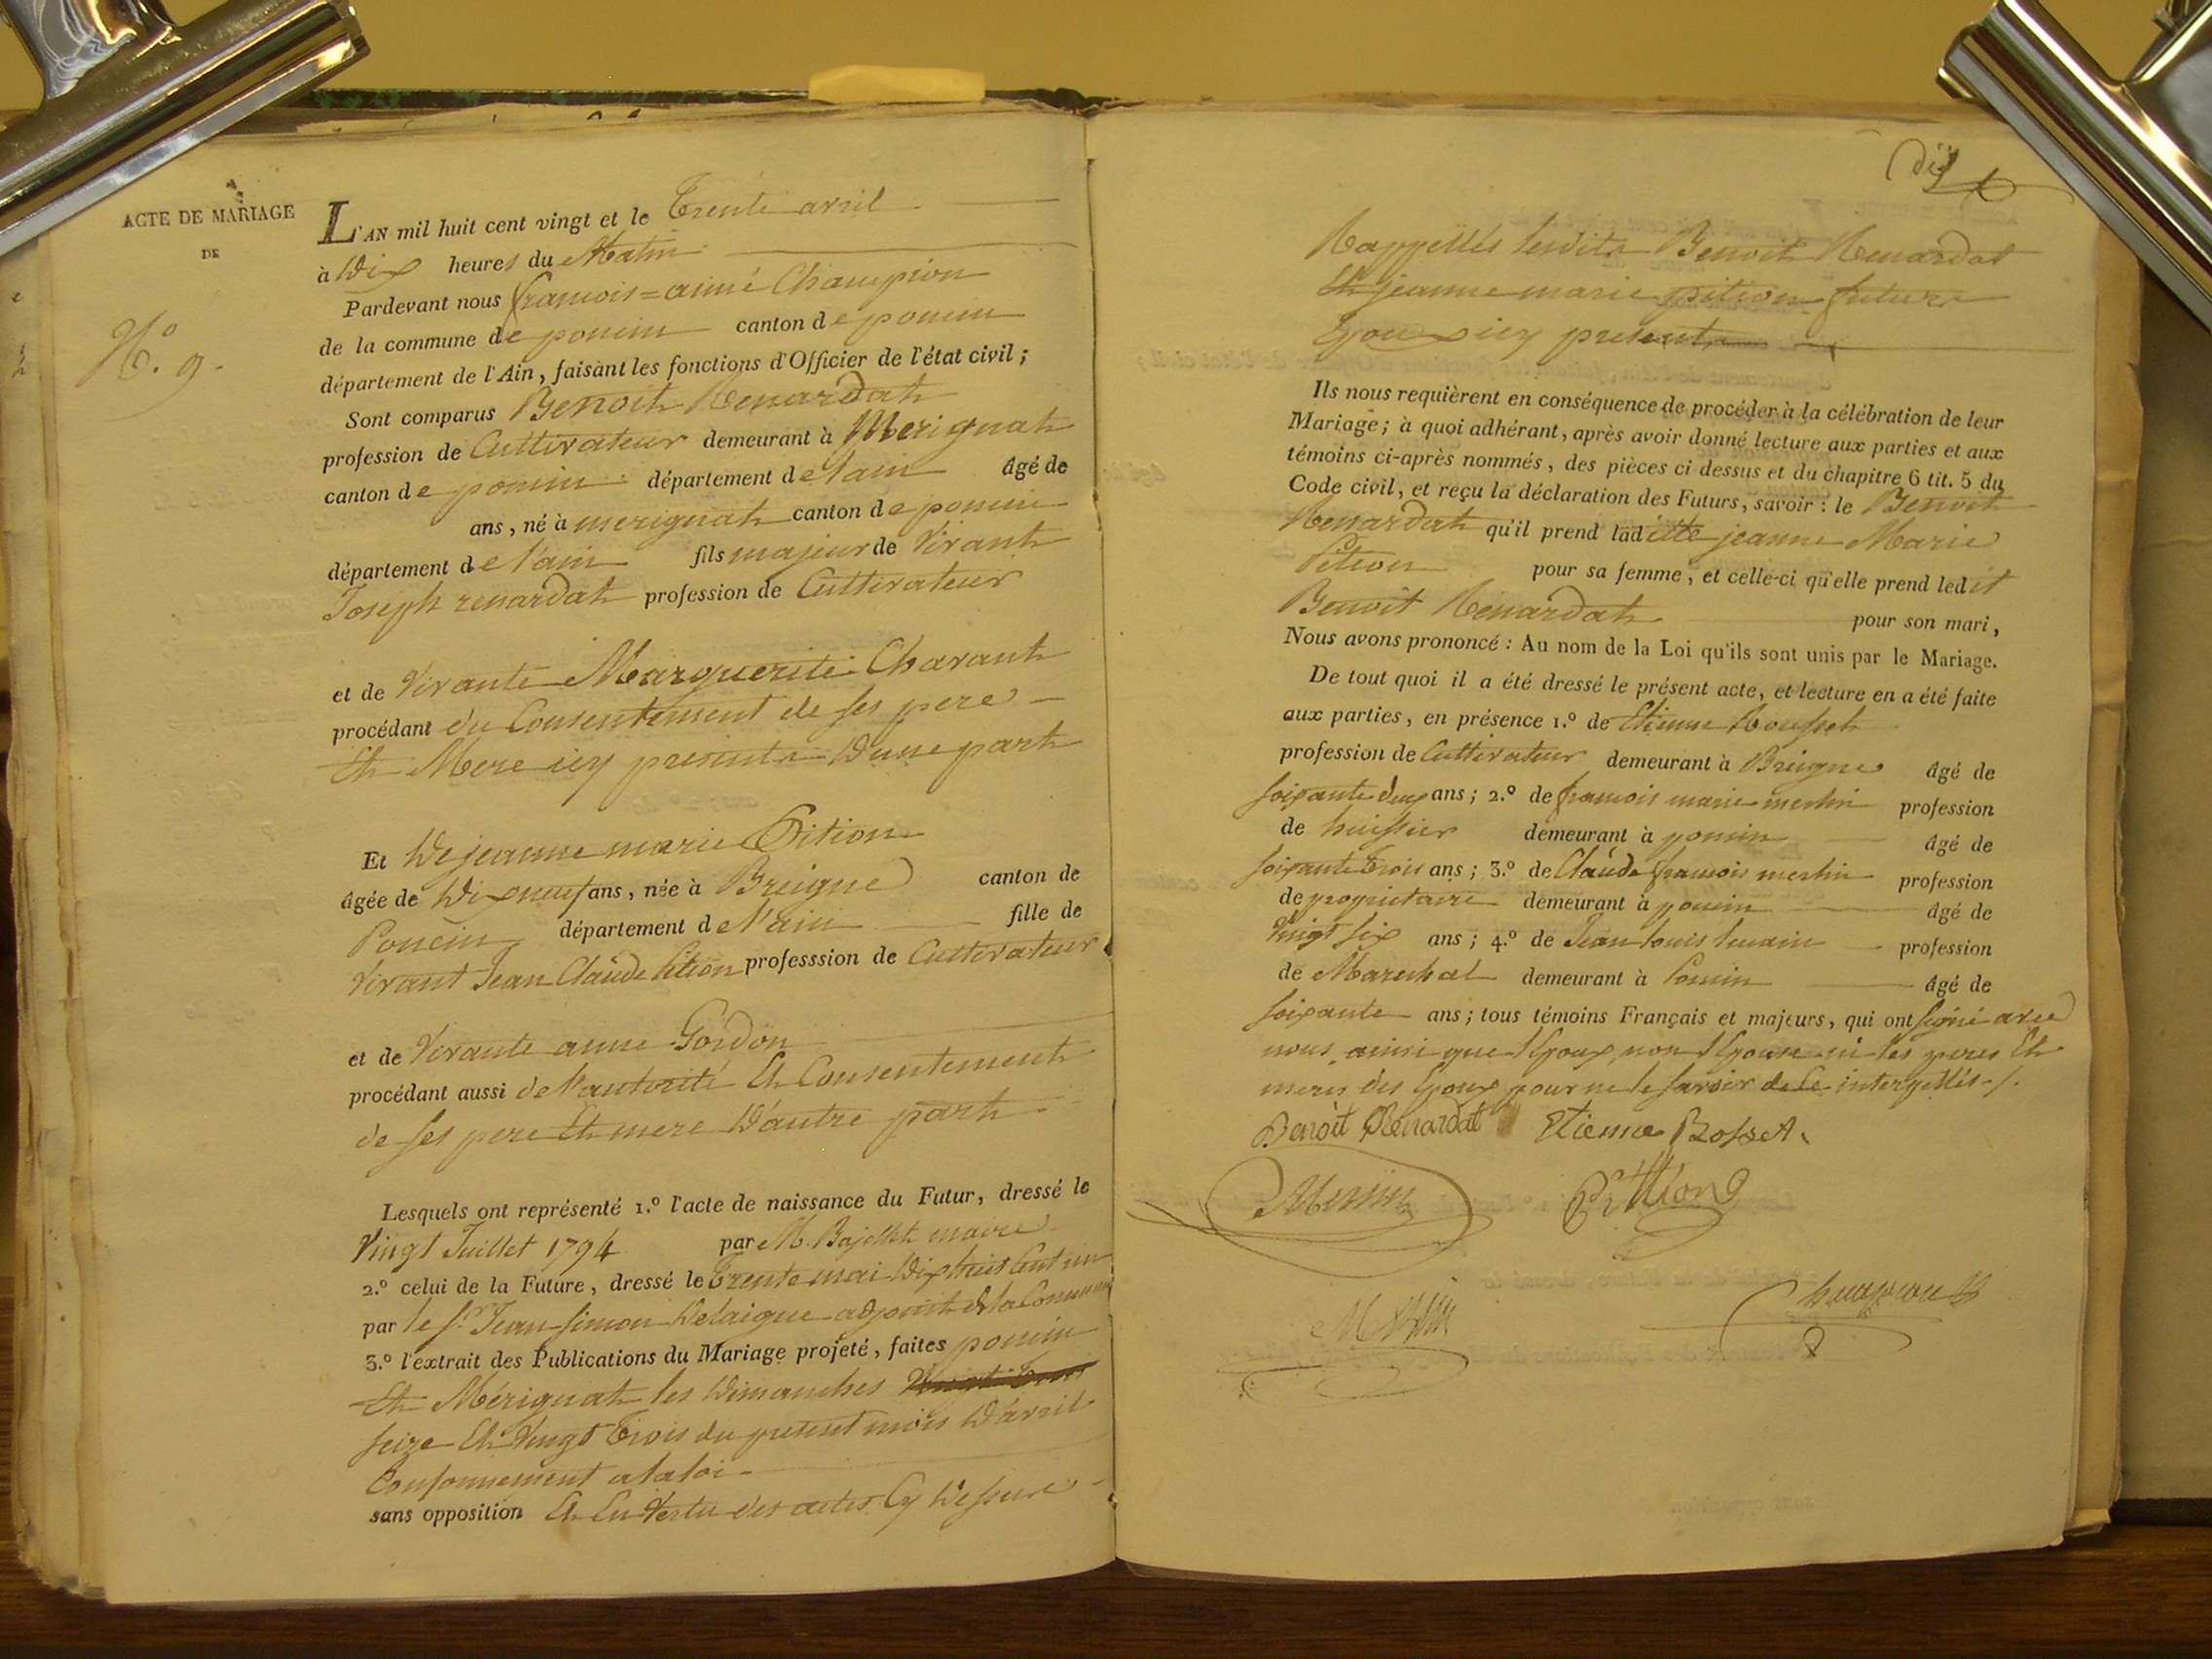 ACTE DE MARIAGE
DE
N.o 9.
L'AN mil huit cent vingt et le Trente avril
à Dix heures du Matin
Pardevant nous françois=aimé Champion
de la commune de poncin canton de poncin
département de l'Ain, faisant les fonctions d'Officier de l'état civil ;
Sont comparus Benoit Renardat
profession de Cultivateur demeurant à Merignat
canton de poncin département de lain âgé de
ans, né à merignat canton de poncin
département de l'ain fils majeur de Vivant
Joseph renardat profession de Cultivateur
et de Vivante Marguerite Charant
procédant du Consentement de ses pere
Et Mere icy presents D'une part
Et De jeanne marie Pition
âgée de Dixneuf ans, née à Breigne canton de
Poncin département de l'ain fille de
Vivant Jean Claude Pition professsion de Cultivateur
et de Vivante anne Gordon
procédant aussi de l'autorité Et Consentement
de ses pere Et mere D'autre part
Lesquels ont représenté 1.o l'acte de naissance du Futur, dressé le
Vingt Juillet 1794 par M. maire
2.o celui de la Future, dressé le Trente mai Dix huit Cent un
par le Sr. Jean Simon Delaigue adjoint de la Commune
3.o l'extrait des Publications du Mariage projeté, faites poncin
Et Mérignat les Dimanches
seize Et Vingt Trois du present mois D'avril
Conformement a la loi
sans opposition Et En Vertu des actes Cy Dessus
dix
Rappellés lesdits Benoit Renardat
Et jeanne marie pition futurs
Epoux icy presents
Ils nous requièrent en conséquence de procéder à la célébration de leur
Mariage ; à quoi adhérant, après avoir donné lecture aux parties et aux
témoins ci-après nommés, des pièces ci dessus et du chapitre 6 tit. 5 du
Code civil, et reçu la déclaration des Futurs, savoir : le Benoit
Renardat qu'il prend laditte jeanne Marie
Pition pour sa femme, et celle-ci qu'elle prend ledit
Benoit Renardat pour son mari,
Nous avons prononcé : Au nom de la Loi qu'ils sont unis par le Mariage.
De tout quoi il a été dressé le présent acte, et lecture en a été faite
aux parties, en présence 1.o de Etienne Rousset
profession de Cultivateur demeurant à Breigne âgé de
soixante deux ans ; 2.o de françois marie merlin profession
de huissier demeurant à poncin âgé de
soixante trois ans ; 3.o de Claude françois merlin profession
de proprietaire demeurant à poncin âgé de
Vingt six ans ; 4.o de Jean louis profession
de Marechal demeurant à Poncin âgé de
soixante ans ; tous témoins Français et majeurs, qui ont signé avec
nous ainsi que l'Epoux non l'Epouse ni les peres Et
meres des Epoux pour ne le savoir de ce interpellés ./.
Benoit Renardat Etienne Rosset
Merlin
Merlin